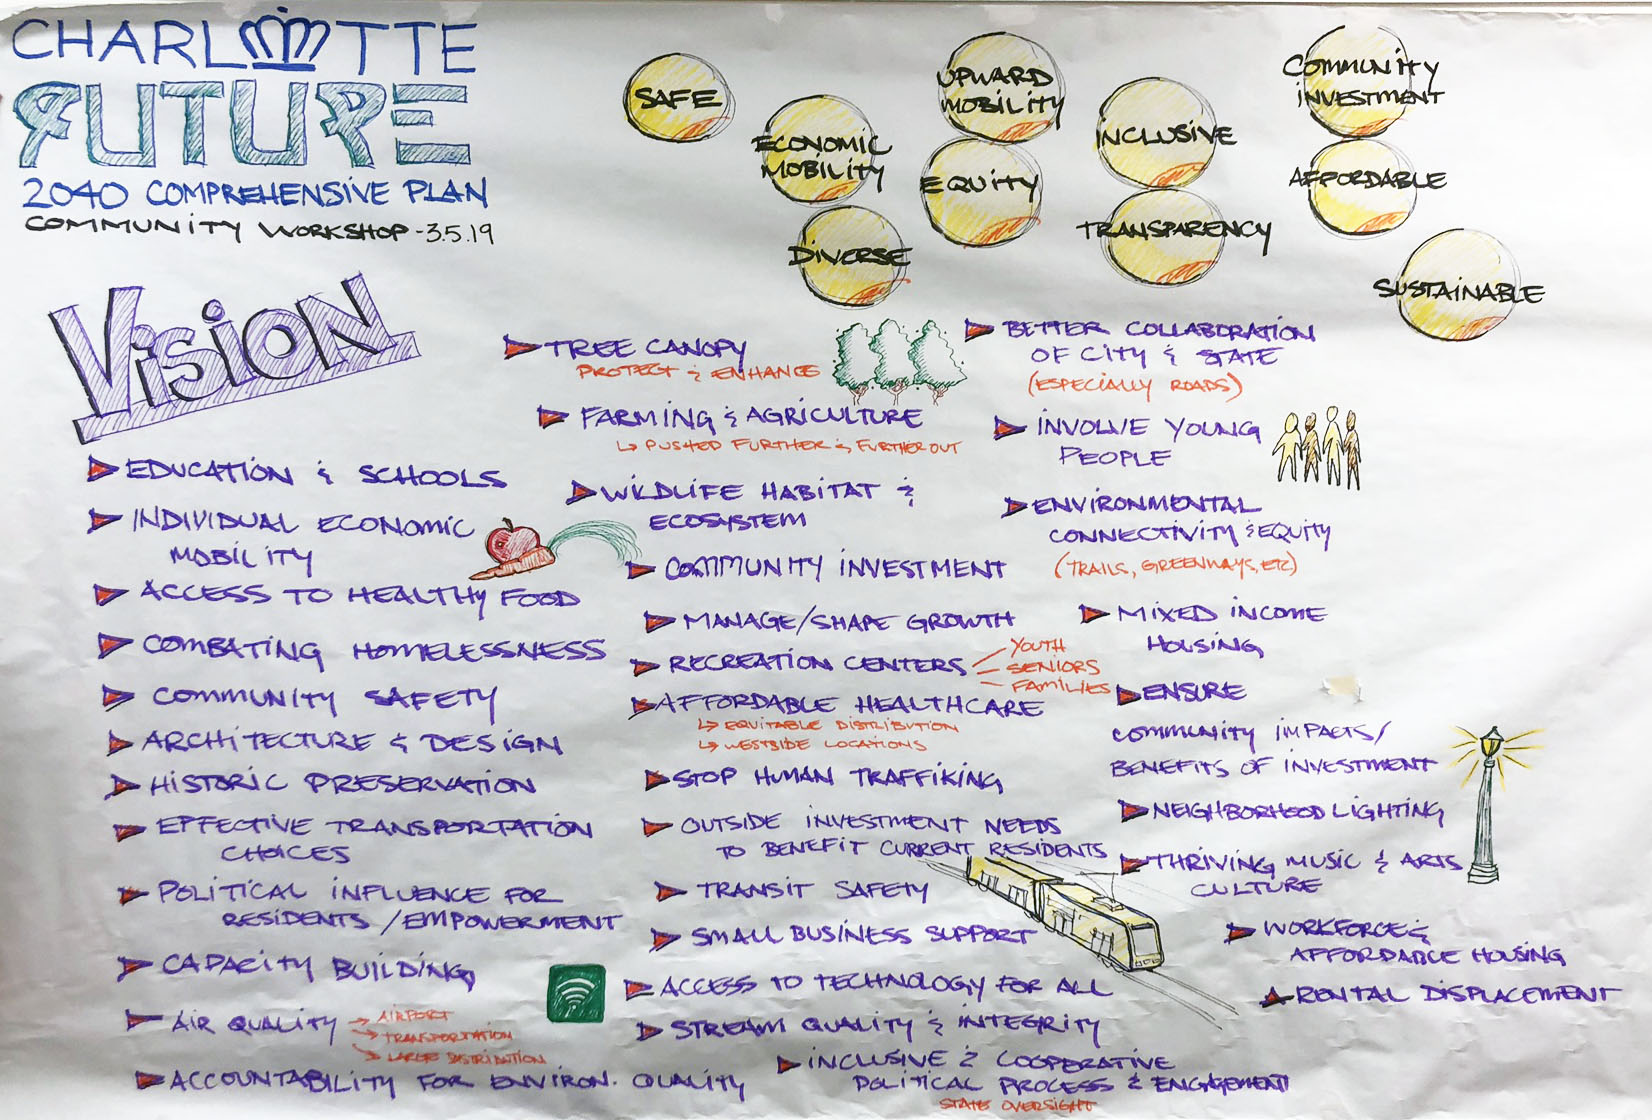 CHARLOTTE
FUTURE
2040 COMPREHENSIVE PLAN
COMMUNITY WORKSHOP - 3.5.19
SAFE
ECONOMIC
MOBILITY
DIVERSE
UPWARD
MOBILITY
EQUITY
INCLUSIVE
TRANSPARENCY
COMMUNITY
INVESTMENT
AFFORDABLE
SUSTAINABLE
VISION
EDUCATION & SCHOOLS
INDIVIDUAL ECONOMIC
MOBILITY
ACCESS TO HEALTHY FOOD
COMBATING HOMELESSNESS
COMMUNITY SAFETY
ARCHITECTURE & DESIGN
HISTORIC PRESERVATION
EFFECTIVE TRANSPORTATION
CHOICES
POLITICAL INFLUENCE FOR
RESIDENTS / EMPOWERMENT
CAPACITY BUILDING
AIR QUALITY → AIRPORT
→ TRANSPORTATION
→ LARGE DISTRIBUTION
ACCOUNTABILITY FOR ENVIRON. QUALITY
TREE CANOPY
PROTECT & ENHANCE
FARMING & AGRICULTURE
↳ PUSHED FURTHER & FURTHER OUT
WILDLIFE HABITAT &
ECOSYSTEM
COMMUNITY INVESTMENT
MANAGE/SHAPE GROWTH
RECREATION CENTERS
YOUTH
SENIORS
FAMILIES
AFFORDABLE HEALTHCARE
↳ EQUITABLE DISTRIBUTION
↳ WESTSIDE LOCATIONS
STOP HUMAN TRAFFIKING
OUTSIDE INVESTMENT NEEDS
TO BENEFIT CURRENT RESIDENTS
TRANSIT SAFETY
SMALL BUSINESS SUPPORT
ACCESS TO TECHNOLOGY FOR ALL
STREAM QUALITY & INTEGRITY
INCLUSIVE & COOPERATIVE
POLITICAL PROCESS & ENGAGEMENT
STATE OVERSIGHT
BETTER COLLABORATION
OF CITY & STATE
(ESPECIALLY ROADS)
INVOLVE YOUNG
PEOPLE
ENVIRONMENTAL
CONNECTIVITY & EQUITY
(TRAILS, GREENWAYS, ETC)
MIXED INCOME
HOUSING
ENSURE
COMMUNITY IMPACTS/
BENEFITS OF INVESTMENT
NEIGHBORHOOD LIGHTING
THRIVING MUSIC & ARTS
CULTURE
WORKFORCE &
AFFORDABLE HOUSING
RENTAL DISPLACEMENT